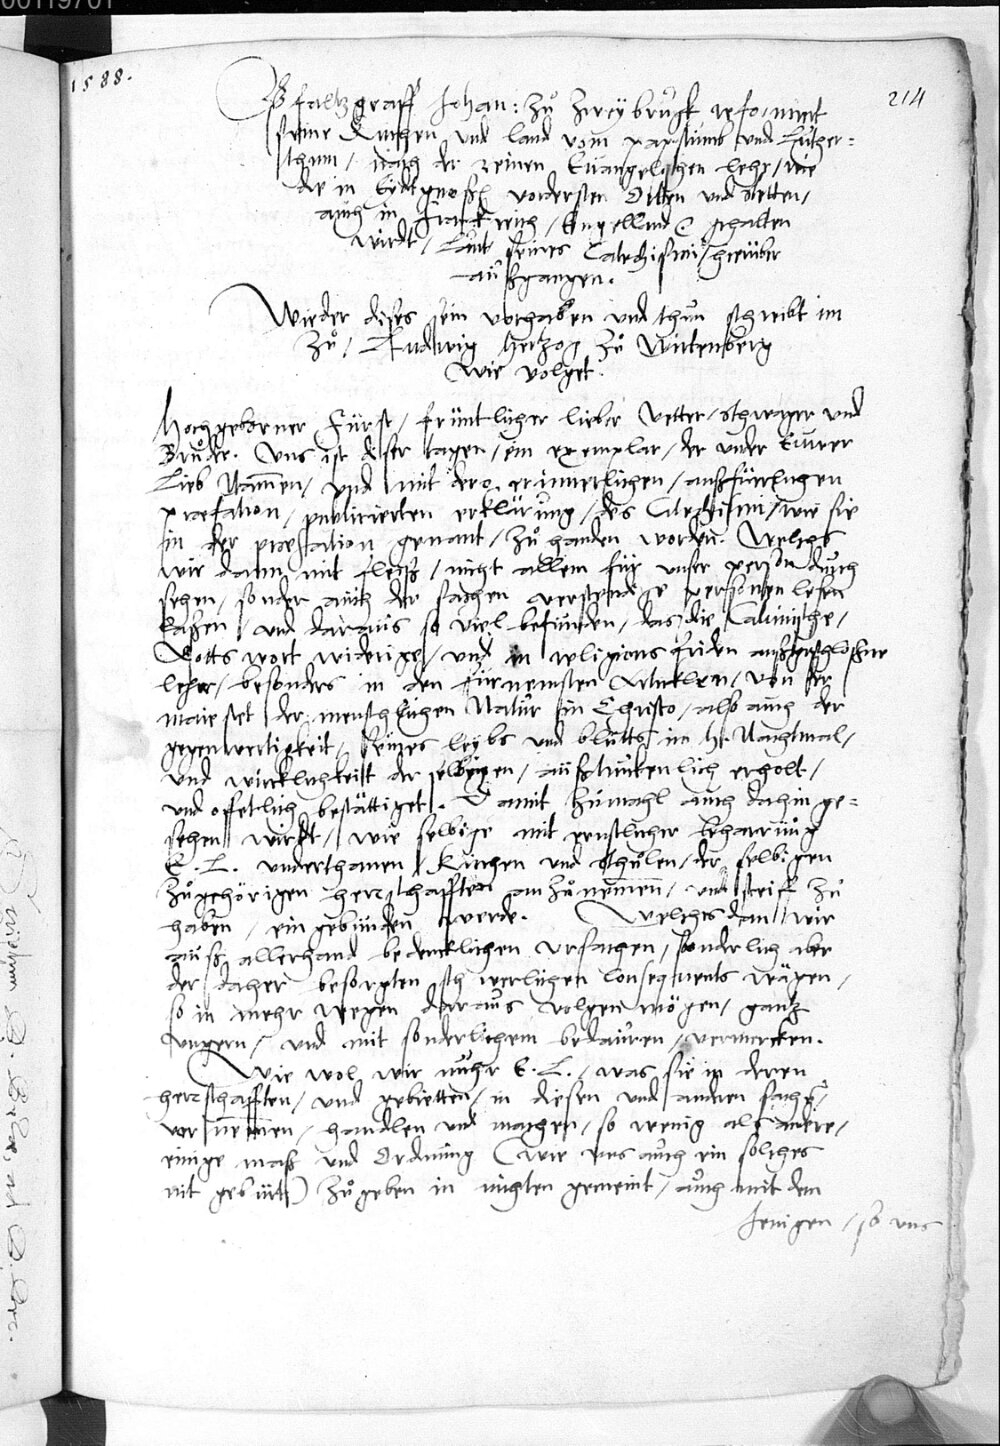 1588.
214
Pfaltzgraff Johan: zů Zweÿbruck reformiert
seine Kirchen und land vom papstumb und Luther-
thum / nach der reinen Euangelischen lehr / wie
die in Eÿdtgnoß: vordersten Orten und Stetten /
auch in Franckreich / Engelland &c gehalten
wirdt / Laut seines Catechismi / hierüber
außgangen.
Wieder dises sein vorhaben und thun schreibt im
zů / Ludwig Hertzog zů Wirtenberg
wie volget.
Hochgeborner Fürst / früntlicher lieber Vetter / schwager und
Brůder. Uns ist diser tagen / ein exemplar / der under Euwer
Lieb Nammen / und mit dero erinnerlichen / außfüerlichen
præfation / publicierten erklärung / des Catechismi / wie sie
in der præfation genant / zů handen worden. Welches
wir dann mit fleiß / nicht allein für unser person durch
sehen / sonder auch der sachen verstendige personen lesen
laßen / und daraus so viel befunden / das die Calvinische /
Gotts wort widerige / und in religions friden außgeschloßne
lehr / besonders in den fürnemsten Articklen / von der
maiestet der menschlichen Natur in Christo / alß auch der
gegenwertigkeit / seines leÿbs und blůtts im H. Nachtmal /
und wircklichkeit der selbigen / außtruckenlich erholt /
und offetlich bestättiget. Damit zumahl auch dahin ge-
sehen wirdt / wie selbige mit ernstlicher beharrung
E. L. underthanen / Kirchen und Schůlen / der selbigen
zůgehörigen herrschafften anzůnemen / und steiff zů
haben / ein gebunden werde. Welches dan wir
auß allerhand bedencklichen ursachen / sonderlich aber
der daher besorgten schwerlichen consequents wägen /
so in mehr wegen daraus volgen mögen / gantz
ungern / und mit sonderlichem bedauren / vermercken.
Wie wol wir nuhn E. L. / was sie in deren
herrschafften / und gebietten / in diesen und andren sachen /
vernemen / handlen und machen / so wenig als andere /
einige maß und Ordnung (wie uns auch ein solches
nit gebürt) zů geben in nichten gemeint / auch mit dem
Jenigen / so uns